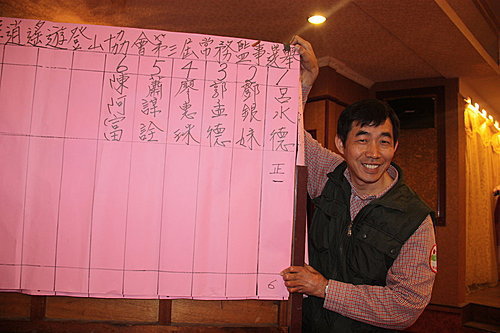 逍遙遊登山協會第三屆常務監事選舉
1呂水德 正一
2鄭銀妹
3郭孟德
4廖惠珠
5蕭謀詮
6陳阿富
6